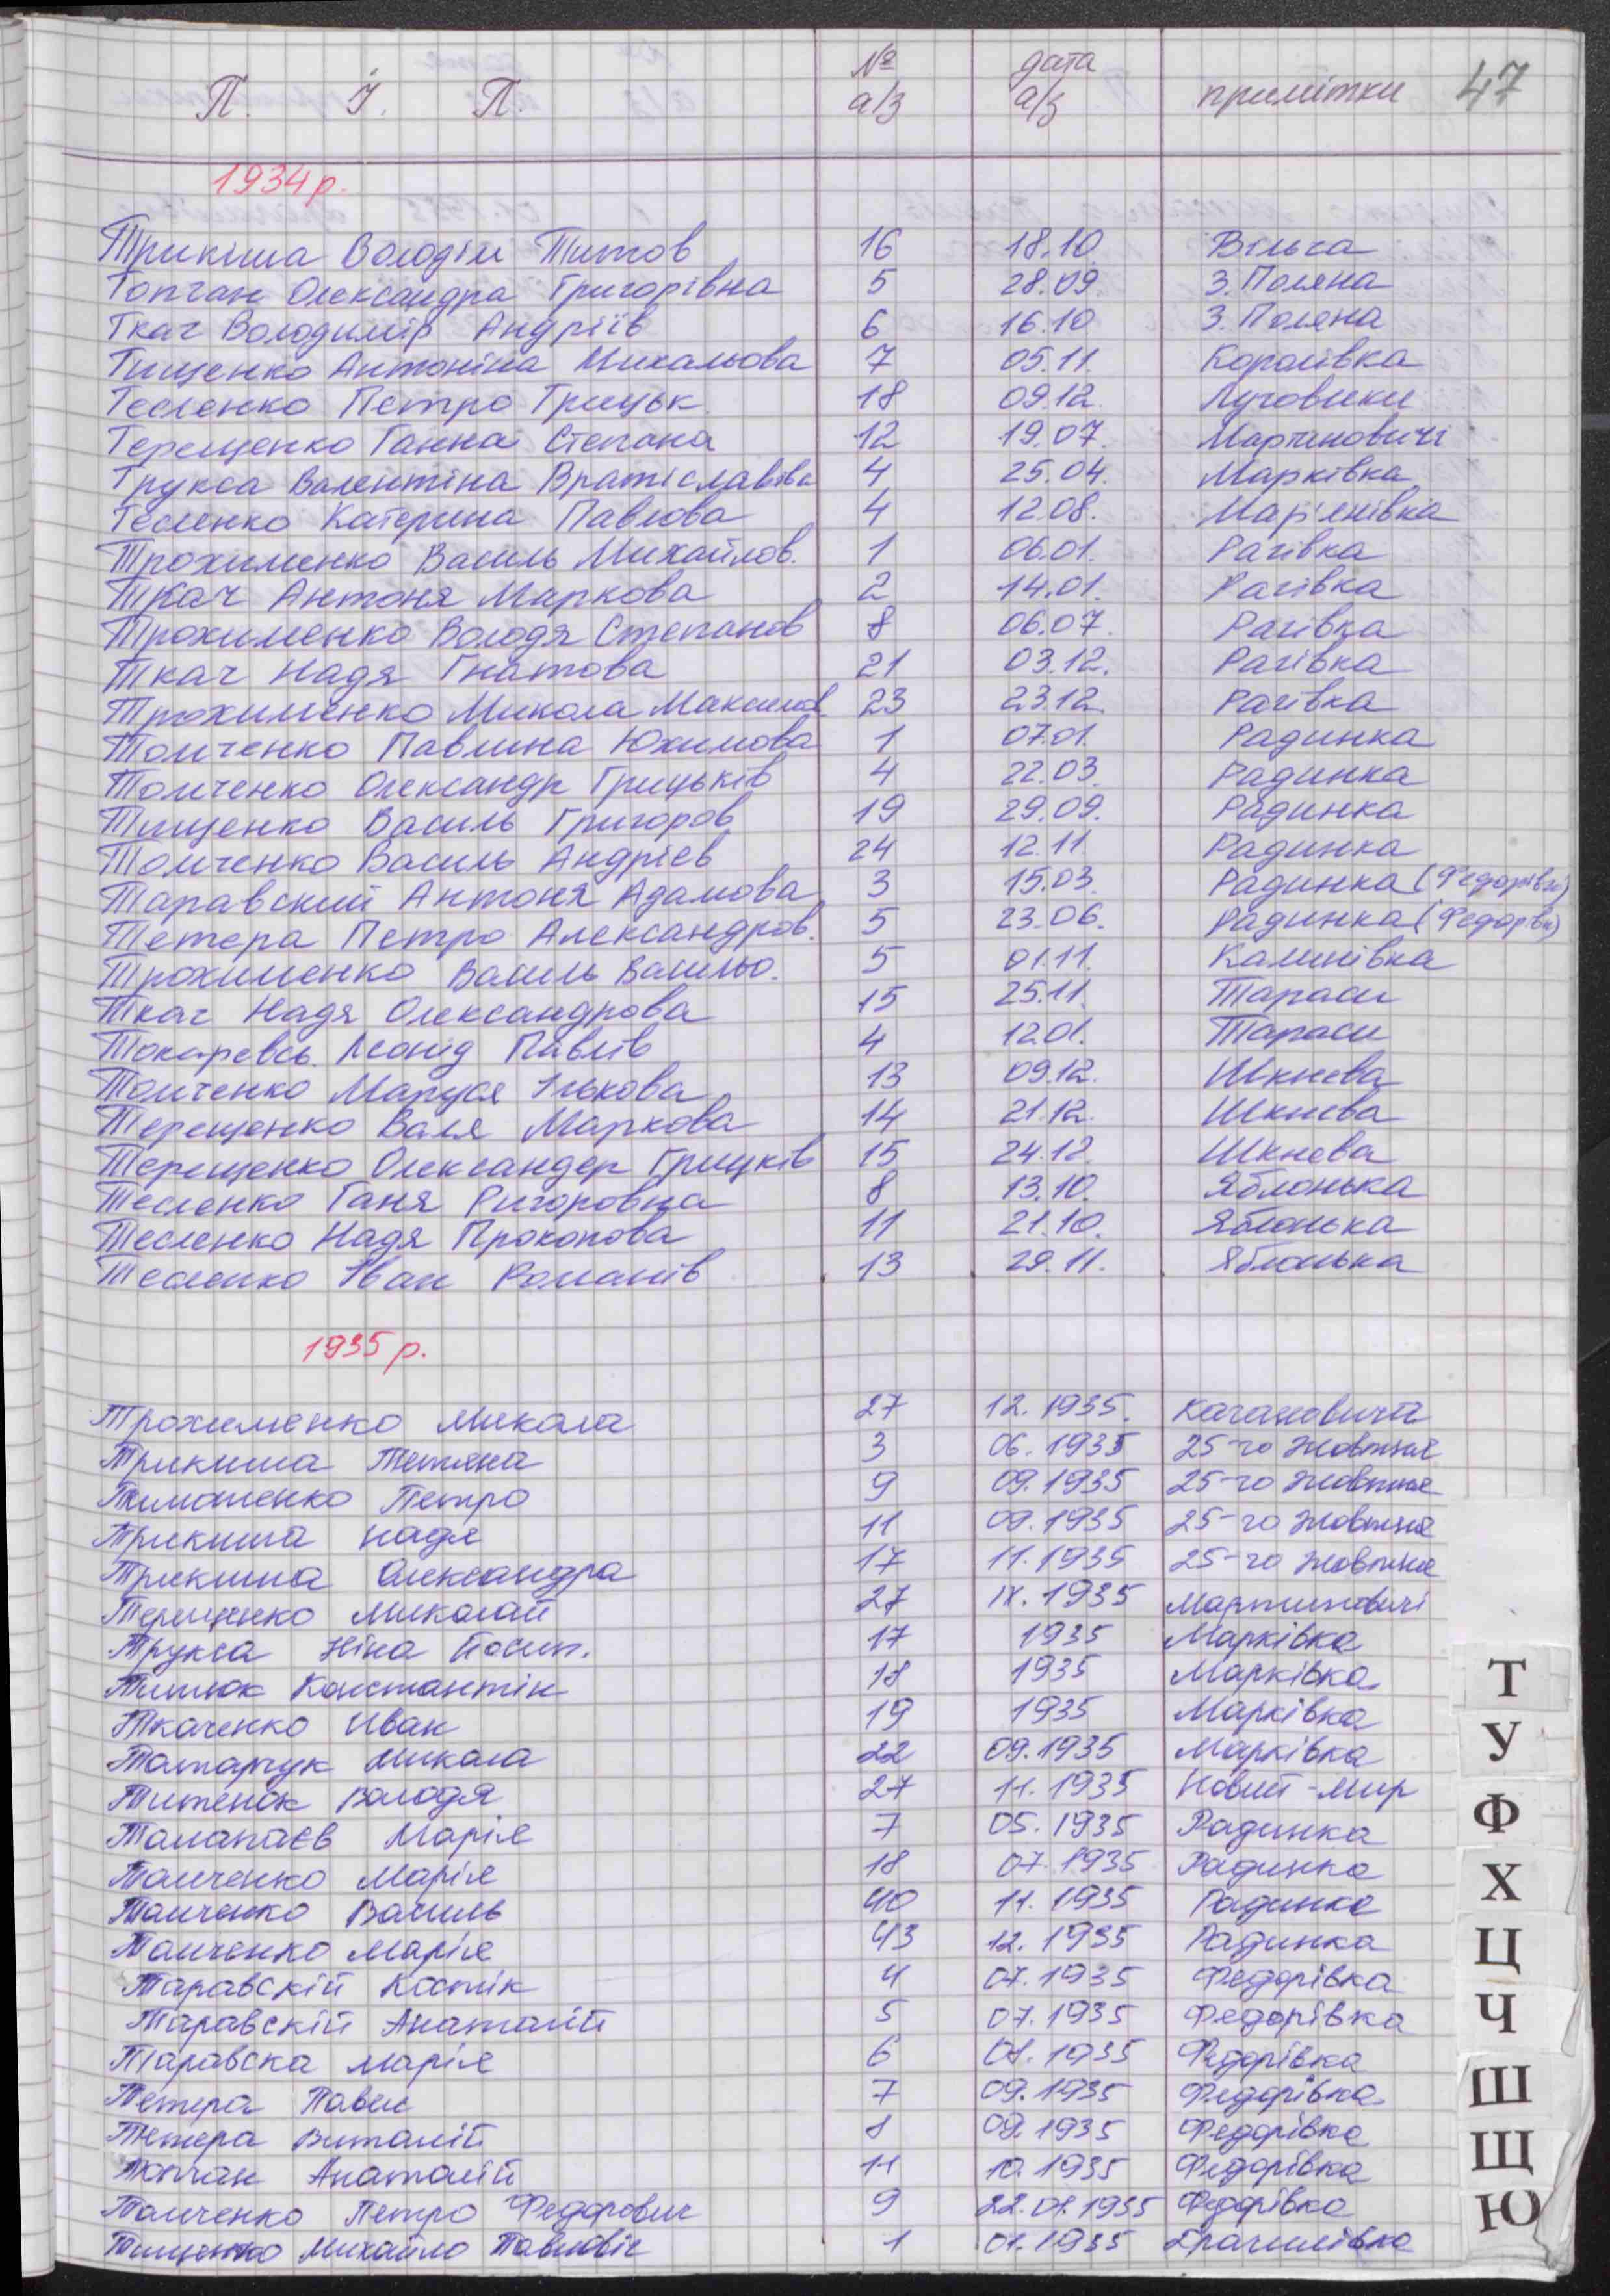 П. І. П. № а/з дата а/з примітки 47
1934 р.
Трикиша Володім Титов 16 18.10. Вільса
Топчан Олександра Григорівна 5 28.09. З. Поляна
Ткач Володимір Андріїв 6 16.10 З. Поляна
Тищенко Антоніна Михальова 7 05.11. Королівка
Тесленко Петро Грицьк. 18 09.12. Луговики
Терещенко Ганна Степана 12 19.07. Мартиновичі
Трукса Валентіна Вратіславівна 4 25.04. Марківка
Тесленко Катерина Павлова 4 12.08. Мар'янівка
Трохименко Василь Михайлов. 1 06.01. Рагівка
Ткач Антоня Маркова 2 14.01. Рагівка
Трохименко Володя Степанов 8 06.07. Рагівка
Ткач Надя Гнатова 21 03.12. Рагівка
Трохименко Микола Максимов. 23 23.12. Рагівка
Томченко Павлина Юхимова 1 07.01. Радинка
Томченко Олександр Грицьків 4 22.03. Радинка
Тищенко Василь Григоров 19 29.09. Радинка
Томченко Василь Андрієв 24 12.11. Радинка
Таравский Антоня Адамова 3 15.03. Радинка (Федорівка)
Тетера Петро Александров. 5 23.06. Радинка (Федорівк)
Трохименко Василь Васильо. 5 01.11. Калинівка
Ткач Надя Олександрова 15 25.11. Тараси
Токаревсь. Леонід Павлів 4 12.01. Тараси
Томченко Маруся Ількова 13 09.12. Шкнева
Терещенко Валя Маркова 14 21.12. Шкнева
Терещенко Олександер Грицків 15 24.12. Шкнева
Тесленко Ганя Ригоровна 8 13.10. Яблонька
Тесленко Надя Прокопова 11 21.10. Яблонька
Тесленко Іван Романів 13 29.11. Яблонька
1935 р.
Трохименко Микола 27 12.1935. Кагановичи
Трикиша Тетяна 3 06.1935 25-го Жовтня
Тимошенко Петро 9 09.1935 25-го Жовтня
Трикиша Надя 11 09.1935 25-го Жовтня
Трикиша Олександра 17 11.1935 25-го Жовтня
Терещенко Миколай 27 ІХ.1935 Мартиновичі
Трукса Ніна Йосип. 17 1935 Марківка
Титюк Константін 18 1935 Марківка
Ткаченко Иван 19 1935 Марківка
Татарчук Микола 22 09.1935 Марківка
Титенок Володя 27 11.1935 Новий-мир
Талапаєв Марія 7 05.1935 Радинка
Томченко Марія 18 07.1935 Радинка
Томченко Василь 40 11.1935 Радинка
Томченко Марія 43 12.1935 Радинка
Таравскій Костік 4 07.1935 Федорівка
Таравскій Анатолій 5 07.1935 Федорівка
Таравска Марія 6 08.1935 Федорівка
Тетера Павел 7 09.1935 Федорівка
Тетера Виталій 8 09.1935 Федорівка
Топчан Анатолій 11 10.1935 Федорівка
Томченко Петро Федорович 9 22.08.1935 Федорівка
Тищенко Михайло Павловіч 1 01.1935 
Т
У
Ф
Х
Ц
Ч
Ш
Щ
Ю